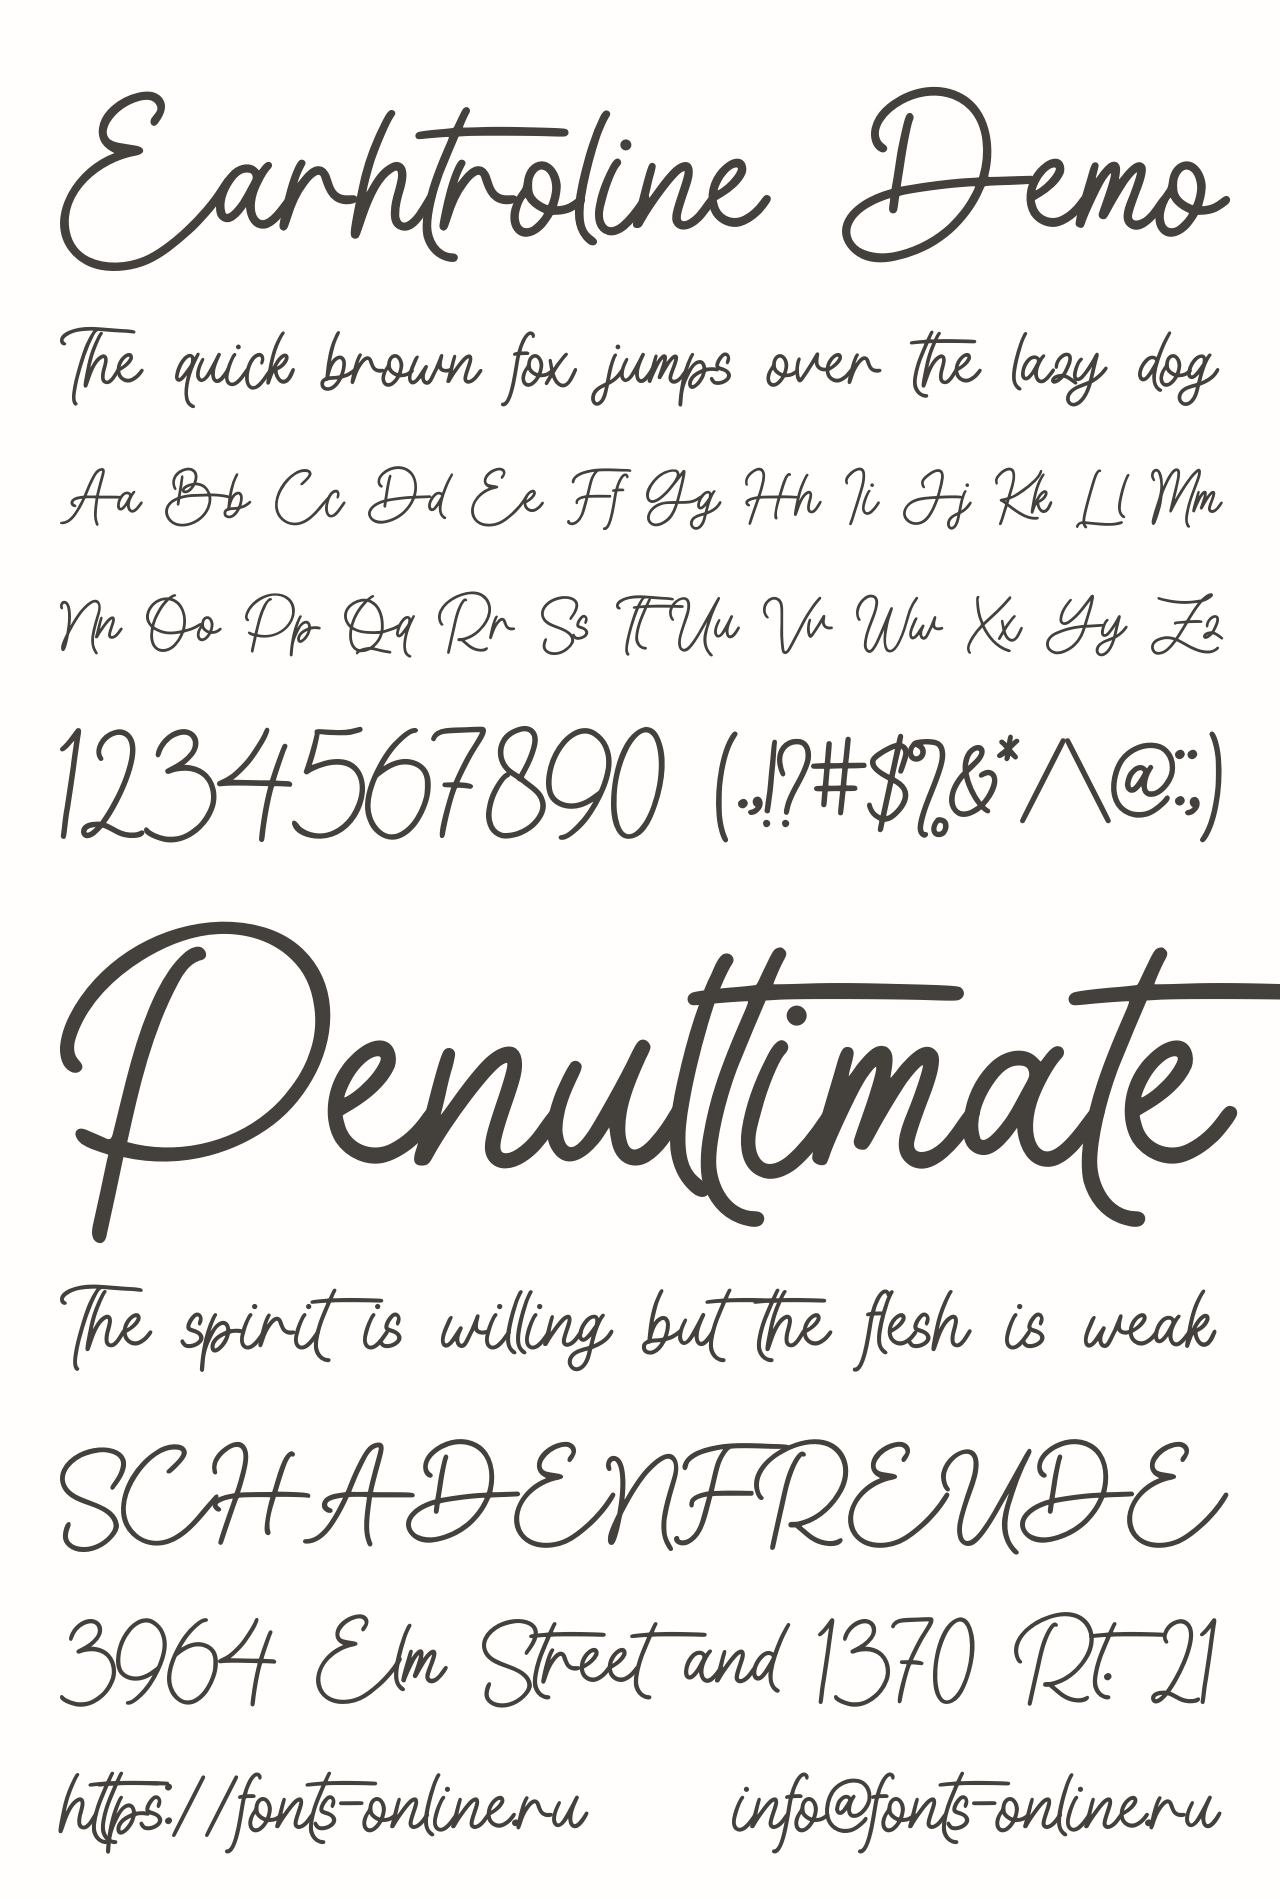 Earhtroline Demo
The quick brown fox jumps over the lazy dog
Aa Bb Cc Dd Ee Ff Gg Hh Ii Jj Kk Ll Mm
Nn Oo Pp Qq Rr Ss Tt Uu Vv Ww Xx Yy Zz
1234567890 (.,!?#$%&*/\@:;)
Penultimate
The spirit is willing but the flesh is weak
SCHADENFREUDE
3964 Elm Street and 1370 Rt. 21
https://fonts-online.ru info@fonts-online.ru